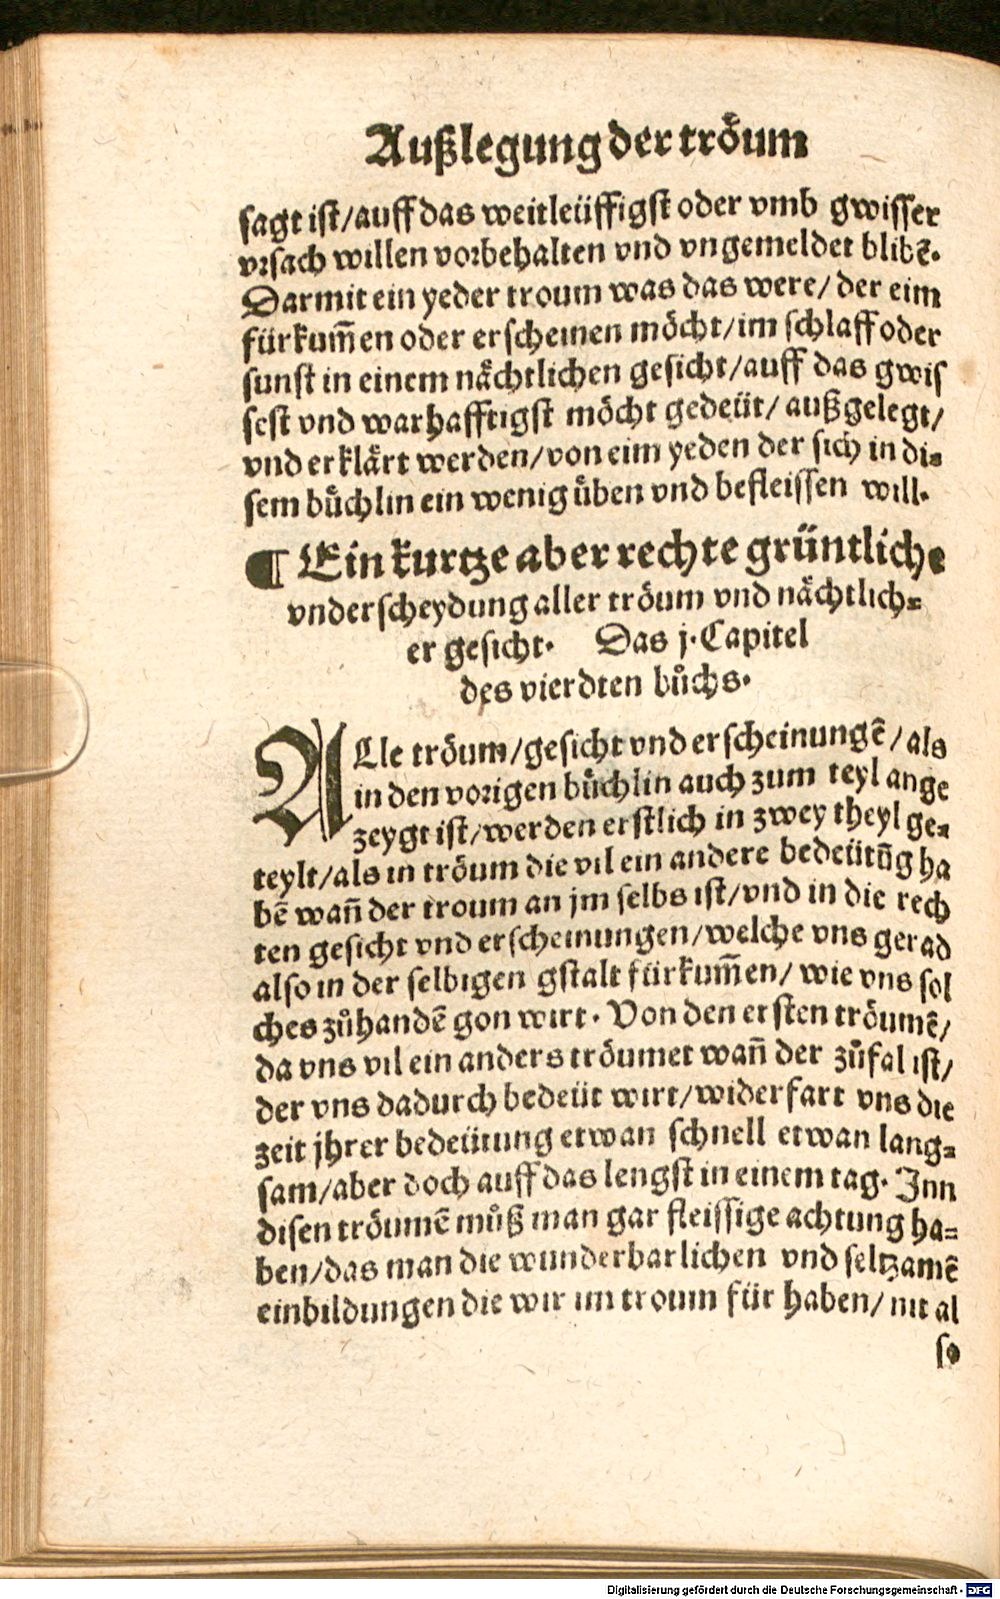 Außlegung der tröum
sagt ist/auff das weitleüffigst oder vmb gwisser
vrsach willen vorbehalten vnd vngemeldet blibẽ.
Darmit ein yeder troum was das were/ der eim
fürkum̃en oder erscheinen möcht/im schlaff oder
sunst in einem nächtlichen gesicht/auff das gwis
sest vnd warhafftigst möcht gedeüt/ außgelegt/
vnd erklärt werden/von eim yeden der sich in di-
sem bůchlin ein wenig üben vnd befleissen will.
¶ Ein kurtze aber rechte gründtliche
vnderscheydung aller tröum vnd nächtlich-
er gesicht. Das j. Capitel
des vierdten bůchs.
ALle tröum/gesicht vnd erscheinungẽ/als
in den vorigen bůchlin auch zum teyl ange
zeygt ist/werden erstlich in zwey theyl ge-
teylt/als in tröum die vil ein andere bedeütũg ha
bẽ wañ der troum an jm selbs ist/vnd in die rech
ten gesicht vnd erscheinungen/welche vns gerad
also in der selbigen gstalt fürkum̃en/ wie vns sol
ches zůhandẽ gon wirt. Von den ersten tröumẽ/
da vns vil ein anders tröumet wañ der zůfal ist/
der vns dadurch bedeüt wirt/widerfart vns die
zeit jhrer bedeütung etwan schnell etwan lang-
sam/aber doch auff das lengst in einem tag. Inn
disen tröumẽ můß man gar fleissige achtung ha-
ben/das man die wunderbarlichen vnd seltzamẽ
einbildungen die wir im troum für haben/ nit al
so
Digitalisierung gefördert durch die Deutsche Forschungsgemeinschaft - DFG